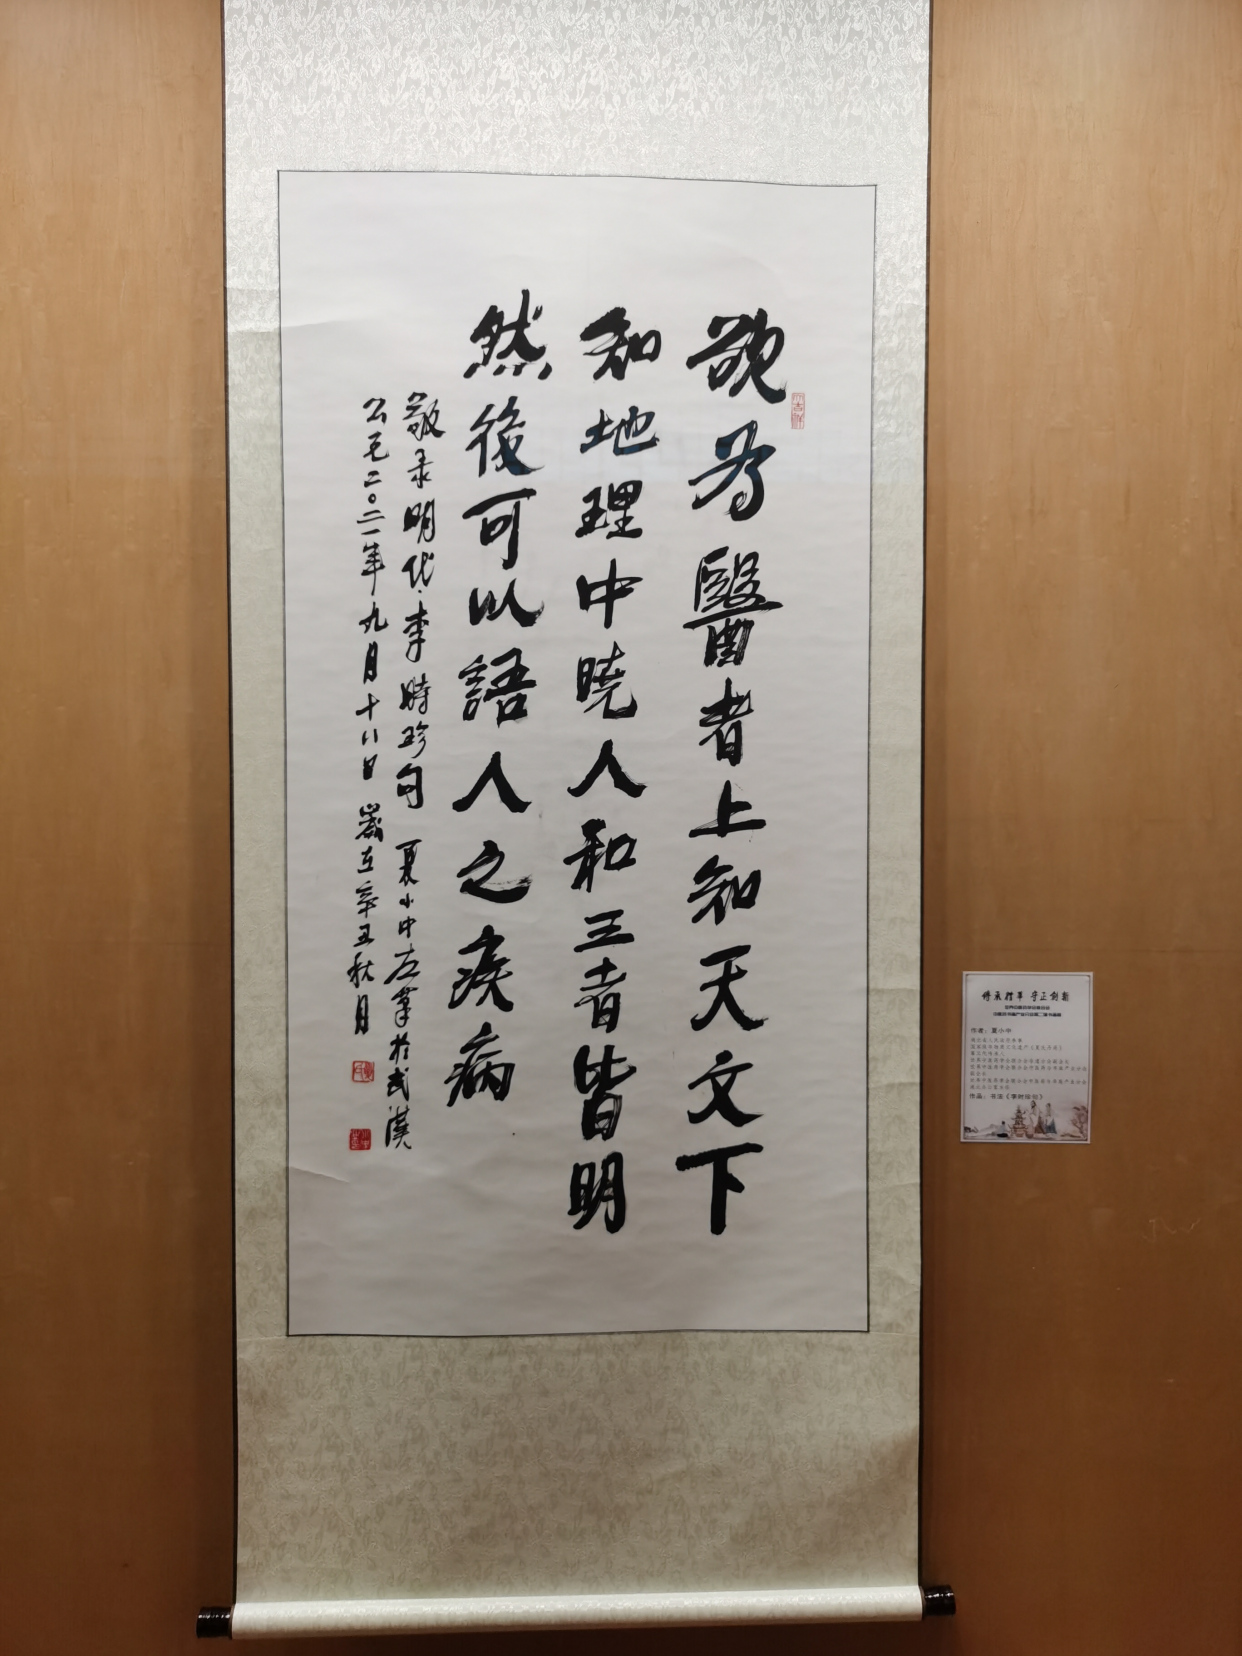 欲为醫者上知天文下
知地理中晓人和三者皆明
然後可以語人之疾病
敬录明代李時珍句 夏小中左筆於武漢
公元二〇二一年九月十八日歲在辛丑秋月
傳承精華 守正創新
作者：夏小中
作品：书法《李时珍句》